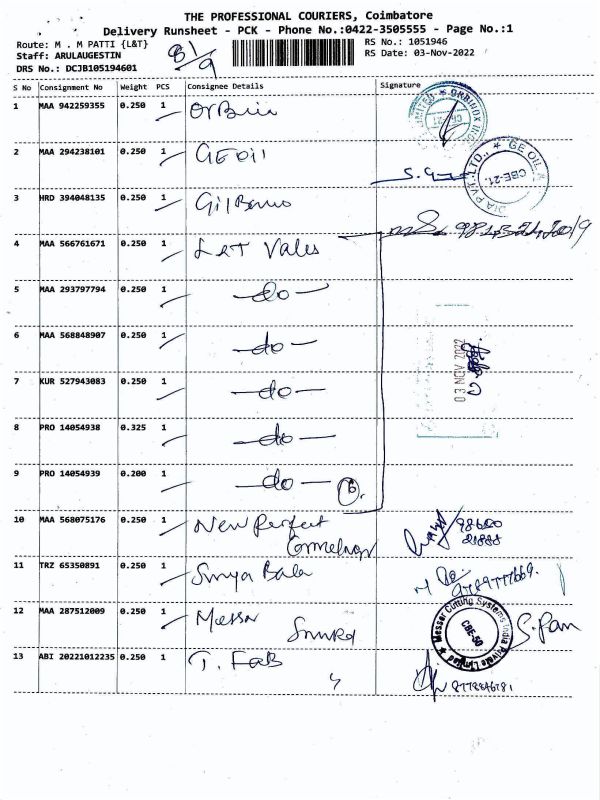 THE PROFESSIONAL COURIERS, Coimbatore
Delivery Runsheet - PCK - Phone No.:0422-3505555 - Page No.:1
Route: M . M PATTI {L&T} RS No.: 1051946
Staff: ARULAUGESTIN RS Date: 03-Nov-2022
DRS No.: DCJB105194601
S No Consignment No Weight PCS Consignee Details Signature
1 MAA 942259355 0.250 1
2 MAA 294238101 0.250 1 GEOil
3 HRD 394048135 0.250 1
4 MAA 566761671 0.250 1 L&T Vales
5 MAA 293797794 0.250 1 - do -
6 MAA 568848907 0.250 1 - do -
7 KUR 527943083 0.250 1 - do -
8 PRO 14054938 0.325 1 - do -
9 PRO 14054939 0.200 1 - do - 6.
03 NOV 2022
10 MAA 568075176 0.250 1 New Perfect
11 TRZ 65350891 0.250 1 Surya Bala
12 MAA 287512009 0.250 1 Messer
Messer Cutting Systems India Private Limited ★ CBE-50
13 ABI 20221012235 0.250 1 T. FaB
GE OIL CBE-21. DIA PVT. LTD., ★